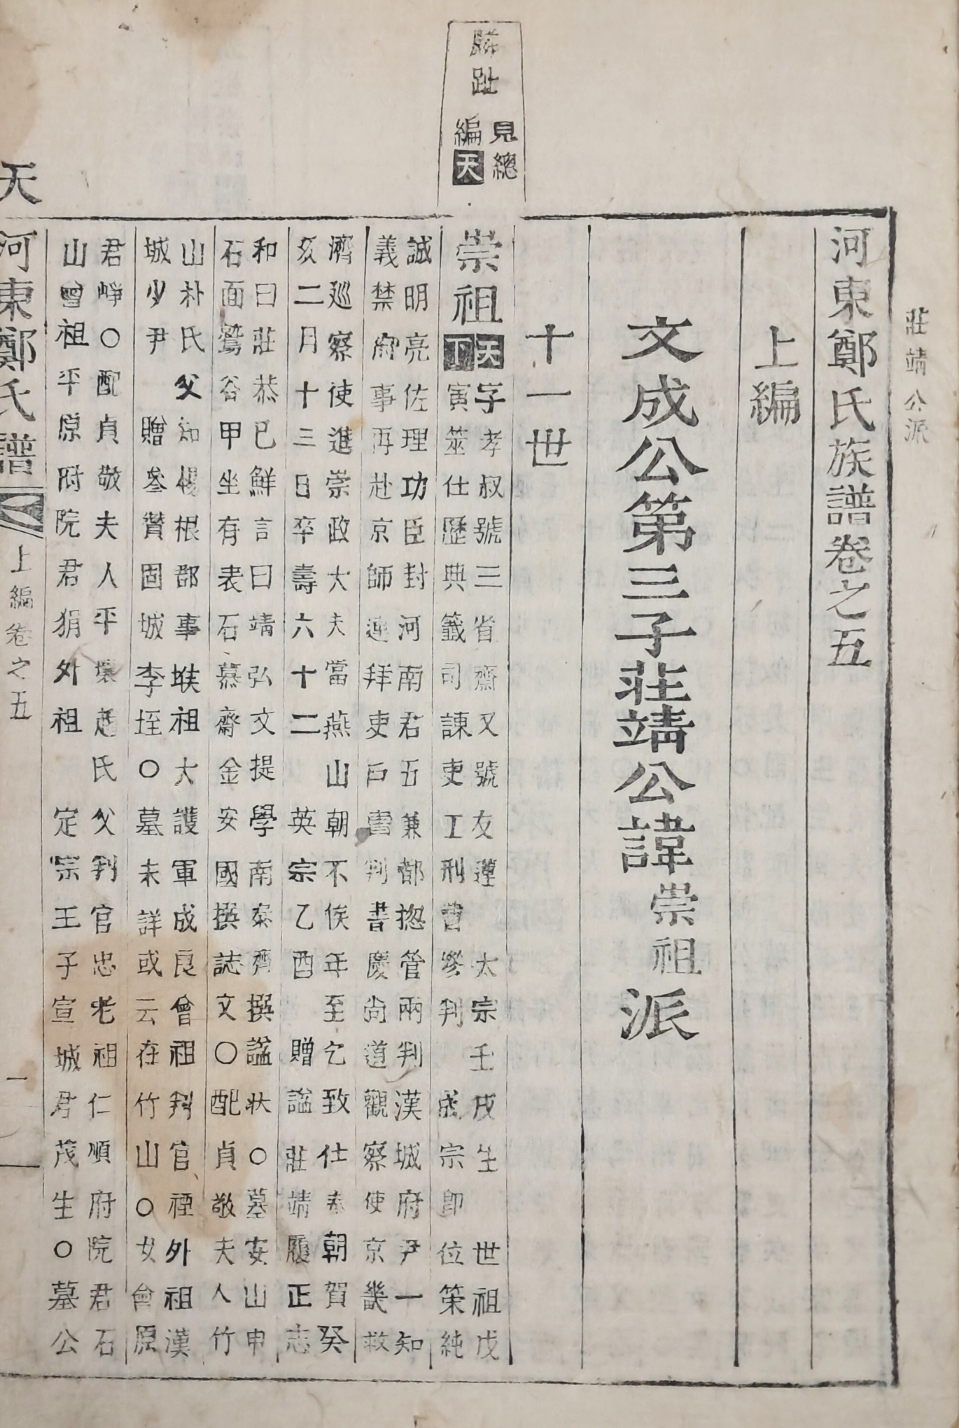 莊靖公派
河東鄭氏族譜卷之五
上編
文成公第三子莊靖公諱崇祖派
十一世
麟趾
見總
編天
崇祖
天下
字孝叔號三省齋又號友遵 太宗壬戌生 世祖戊
寅筮仕歷典籤司諫吏工刑曹參判 成宗卽位策純
誠明亮佐理功臣封河南君五兼都摠管兩判漢城府尹一知
義禁府事再赴京師連拜吏戶曹判書慶尙道觀察使京畿救
濟巡察使進崇政大夫當燕山朝不俟年至乞致仕奉朝賀癸
亥二月十三日卒壽六十二 英宗乙酉 贈謚莊靖履正志
和曰莊恭已鮮言曰靖弘文提學南泰齊撰謚狀○墓安山申
石面鷲谷甲坐有表石慕齋金安國撰誌文○配貞敬夫人竹
山朴氏 父知楊根郡事堠祖大護軍成良曾祖判官 外祖漢
城少尹 贈參贊固城李垤○墓未詳或云在竹山○女會原
君崢○配貞敬夫人平壤趙氏父判官忠老祖仁順府院君石
山曾祖平原府院君狷外祖 定宗王子宣城君茂生○墓公
天
河東鄭氏譜
上編卷之五
一